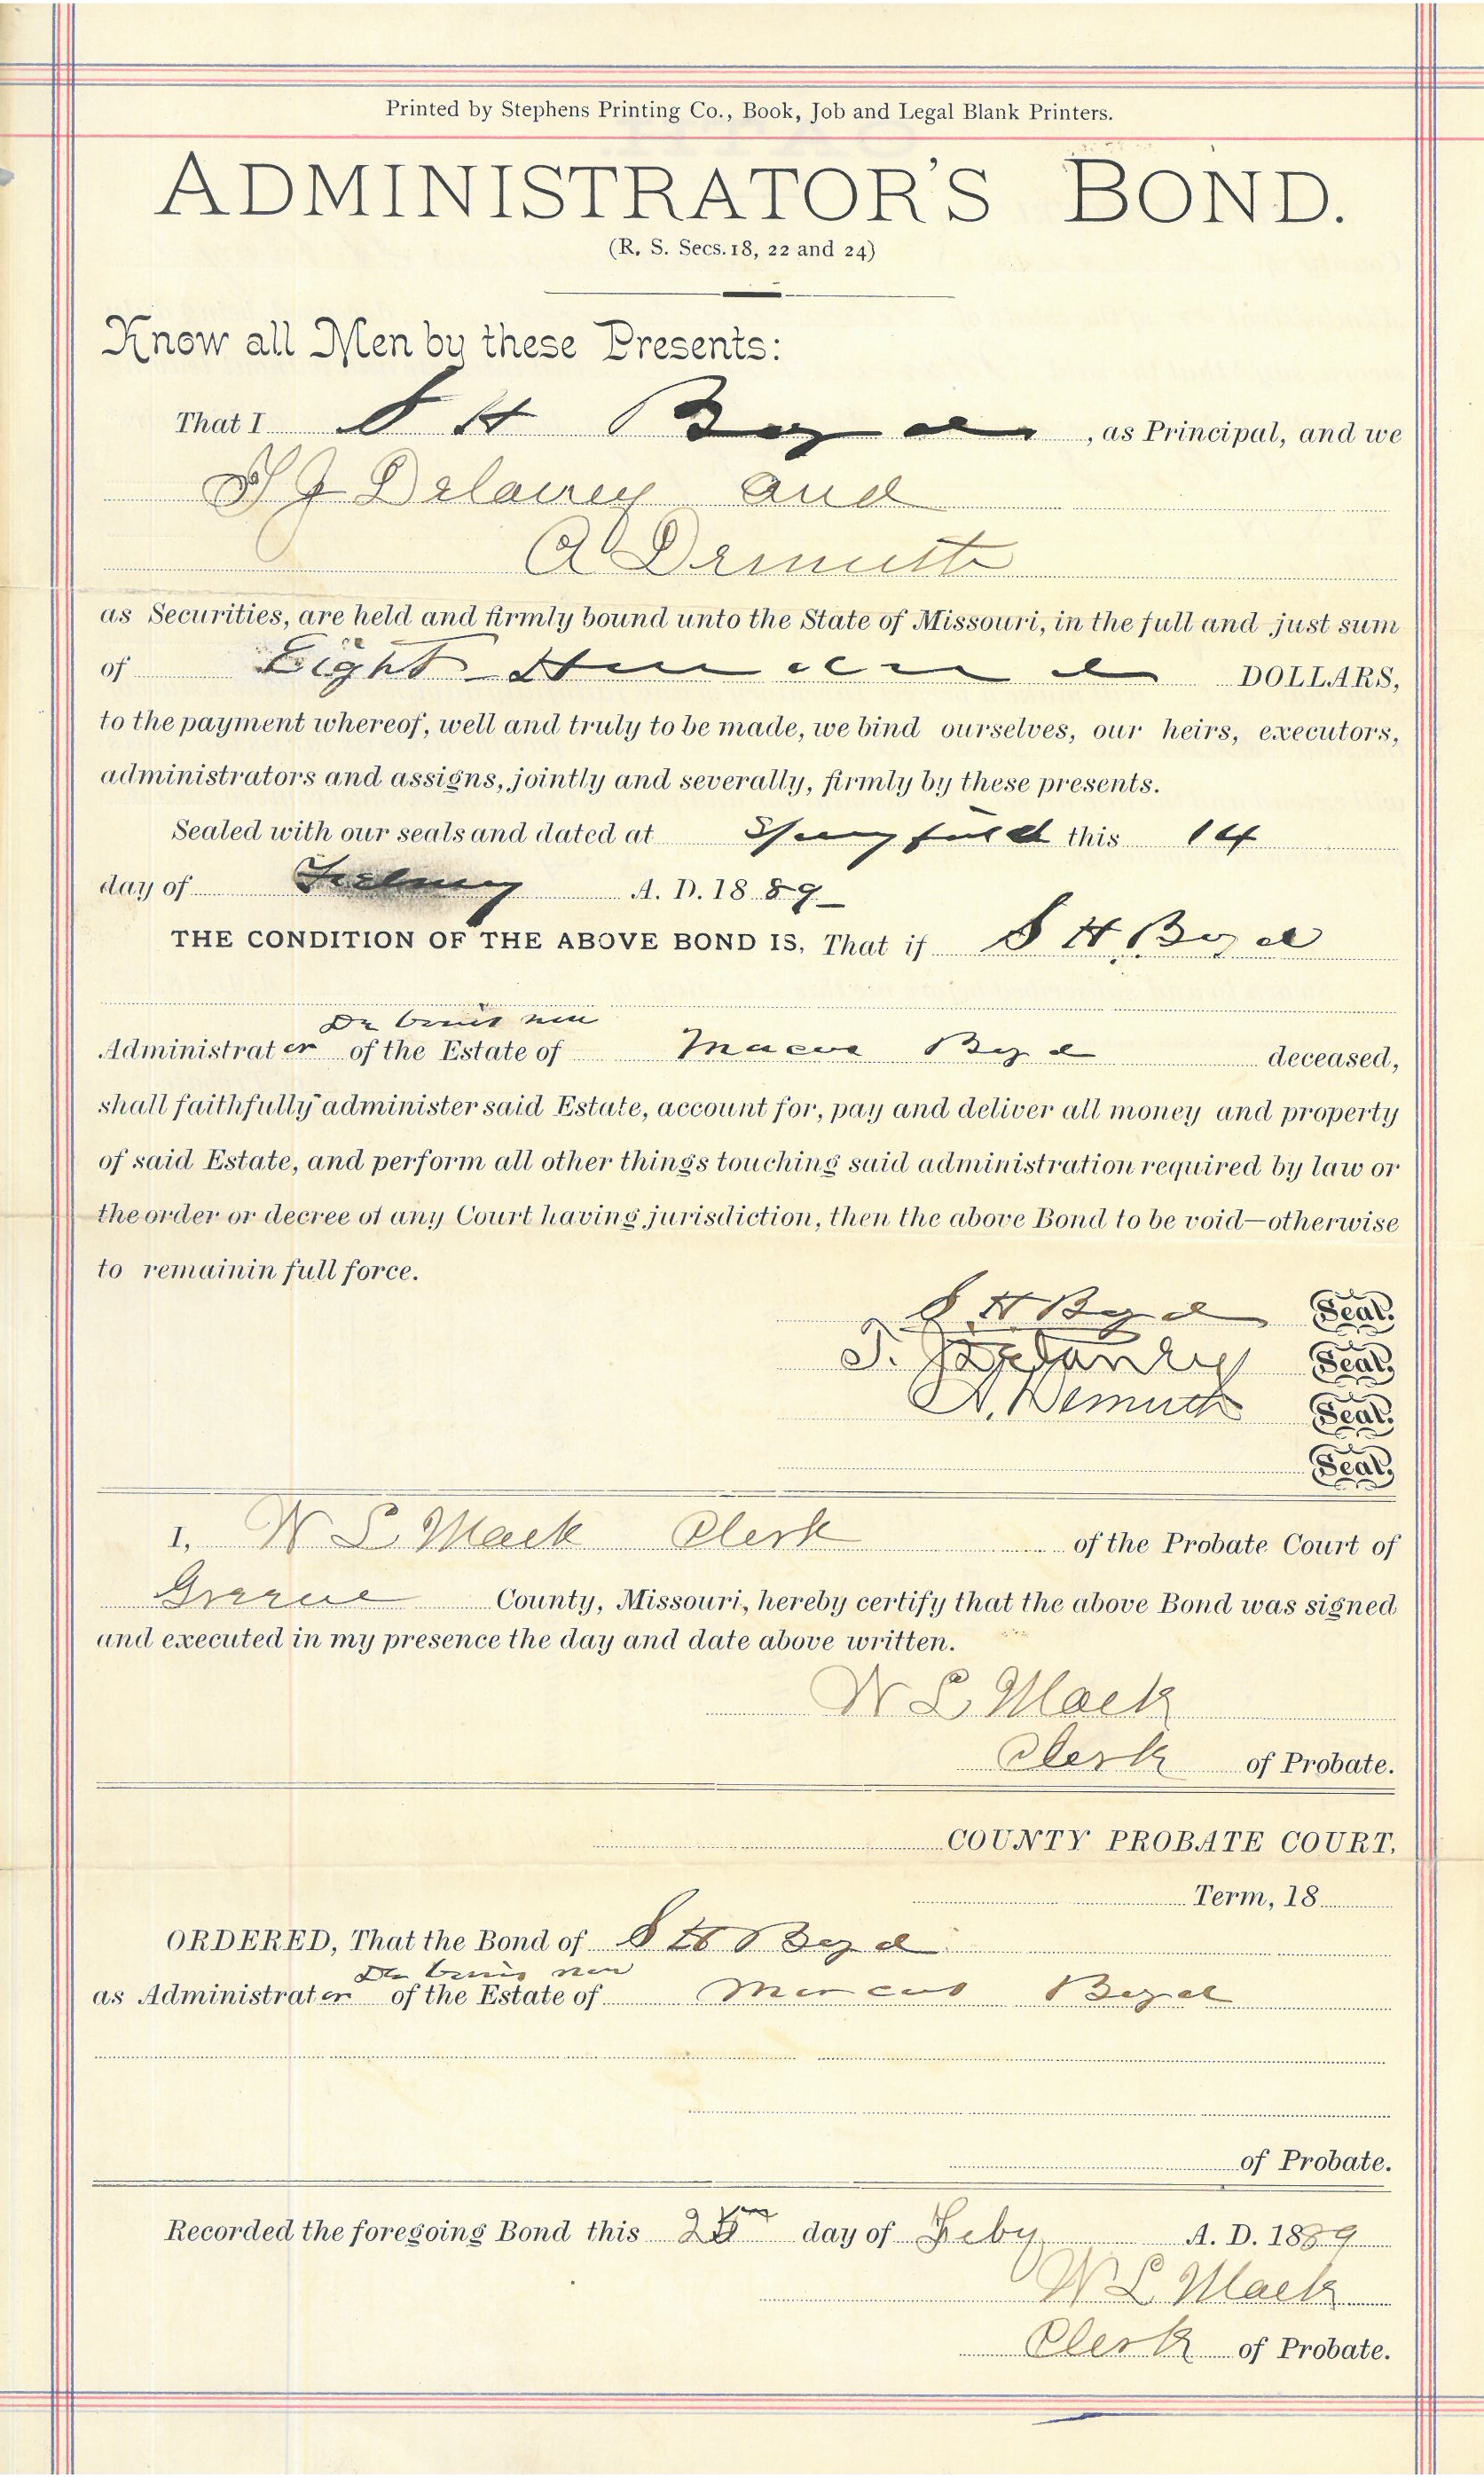 Printed by Stephens Printing Co., Book, Job and Legal Blank Printers.
ADMINISTRATOR'S BOND.
(R. S. Secs. 18, 22 and 24)
Know all Men by these Presents:
That I S H Boyd, as Principal, and we
T J Delaney and
A Demuth
as Securities, are held and firmly bound unto the State of Missouri, in the full and just sum
of Eight Hundred DOLLARS,
to the payment whereof, well and truly to be made, we bind ourselves, our heirs, executors,
administrators and assigns, jointly and severally, firmly by these presents.
Sealed with our seals and dated at Springfield this 14
day of February A. D. 1889
THE CONDITION OF THE ABOVE BOND IS, That if S H Boyd
De bonis non
Administrator of the Estate of Boyd deceased,
shall faithfully administer said Estate, account for, pay and deliver all money and property
of said Estate, and perform all other things touching said administration required by law or
the order or decree of any Court having jurisdiction, then the above Bond to be void—otherwise
to remainin full force.
S H Boyd Seal.
T. J. Delaney Seal.
A. Demuth Seal.
Seal.
I, W L Mack Clerk of the Probate Court of
Greene County, Missouri, hereby certify that the above Bond was signed
and executed in my presence the day and date above written.
W L Mack
Clerk of Probate.
COUNTY PROBATE COURT,
Term, 18
ORDERED, That the Bond of S H Boyd
De bonis non
as Administrator of the Estate of Marcus Boyd
of Probate.
Recorded the foregoing Bond this day of Feby A. D. 1889
W L Mack
Clerk of Probate.